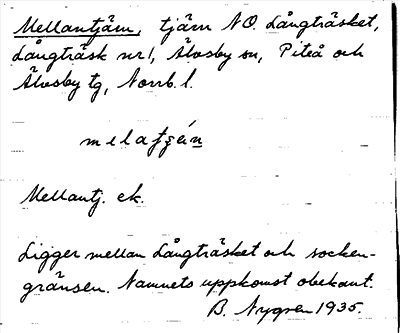 Mellantjärn, tjärn N.O. Långträsket,
Långträsk nr 1, Älvsby sn, Piteå och
Älvsby tg, Norrb. l.
Mellantj. ek.
Ligger mellan Långträsket och socken-
gränsen. Namnets uppkomst obekant.
B. Nygren 1935.